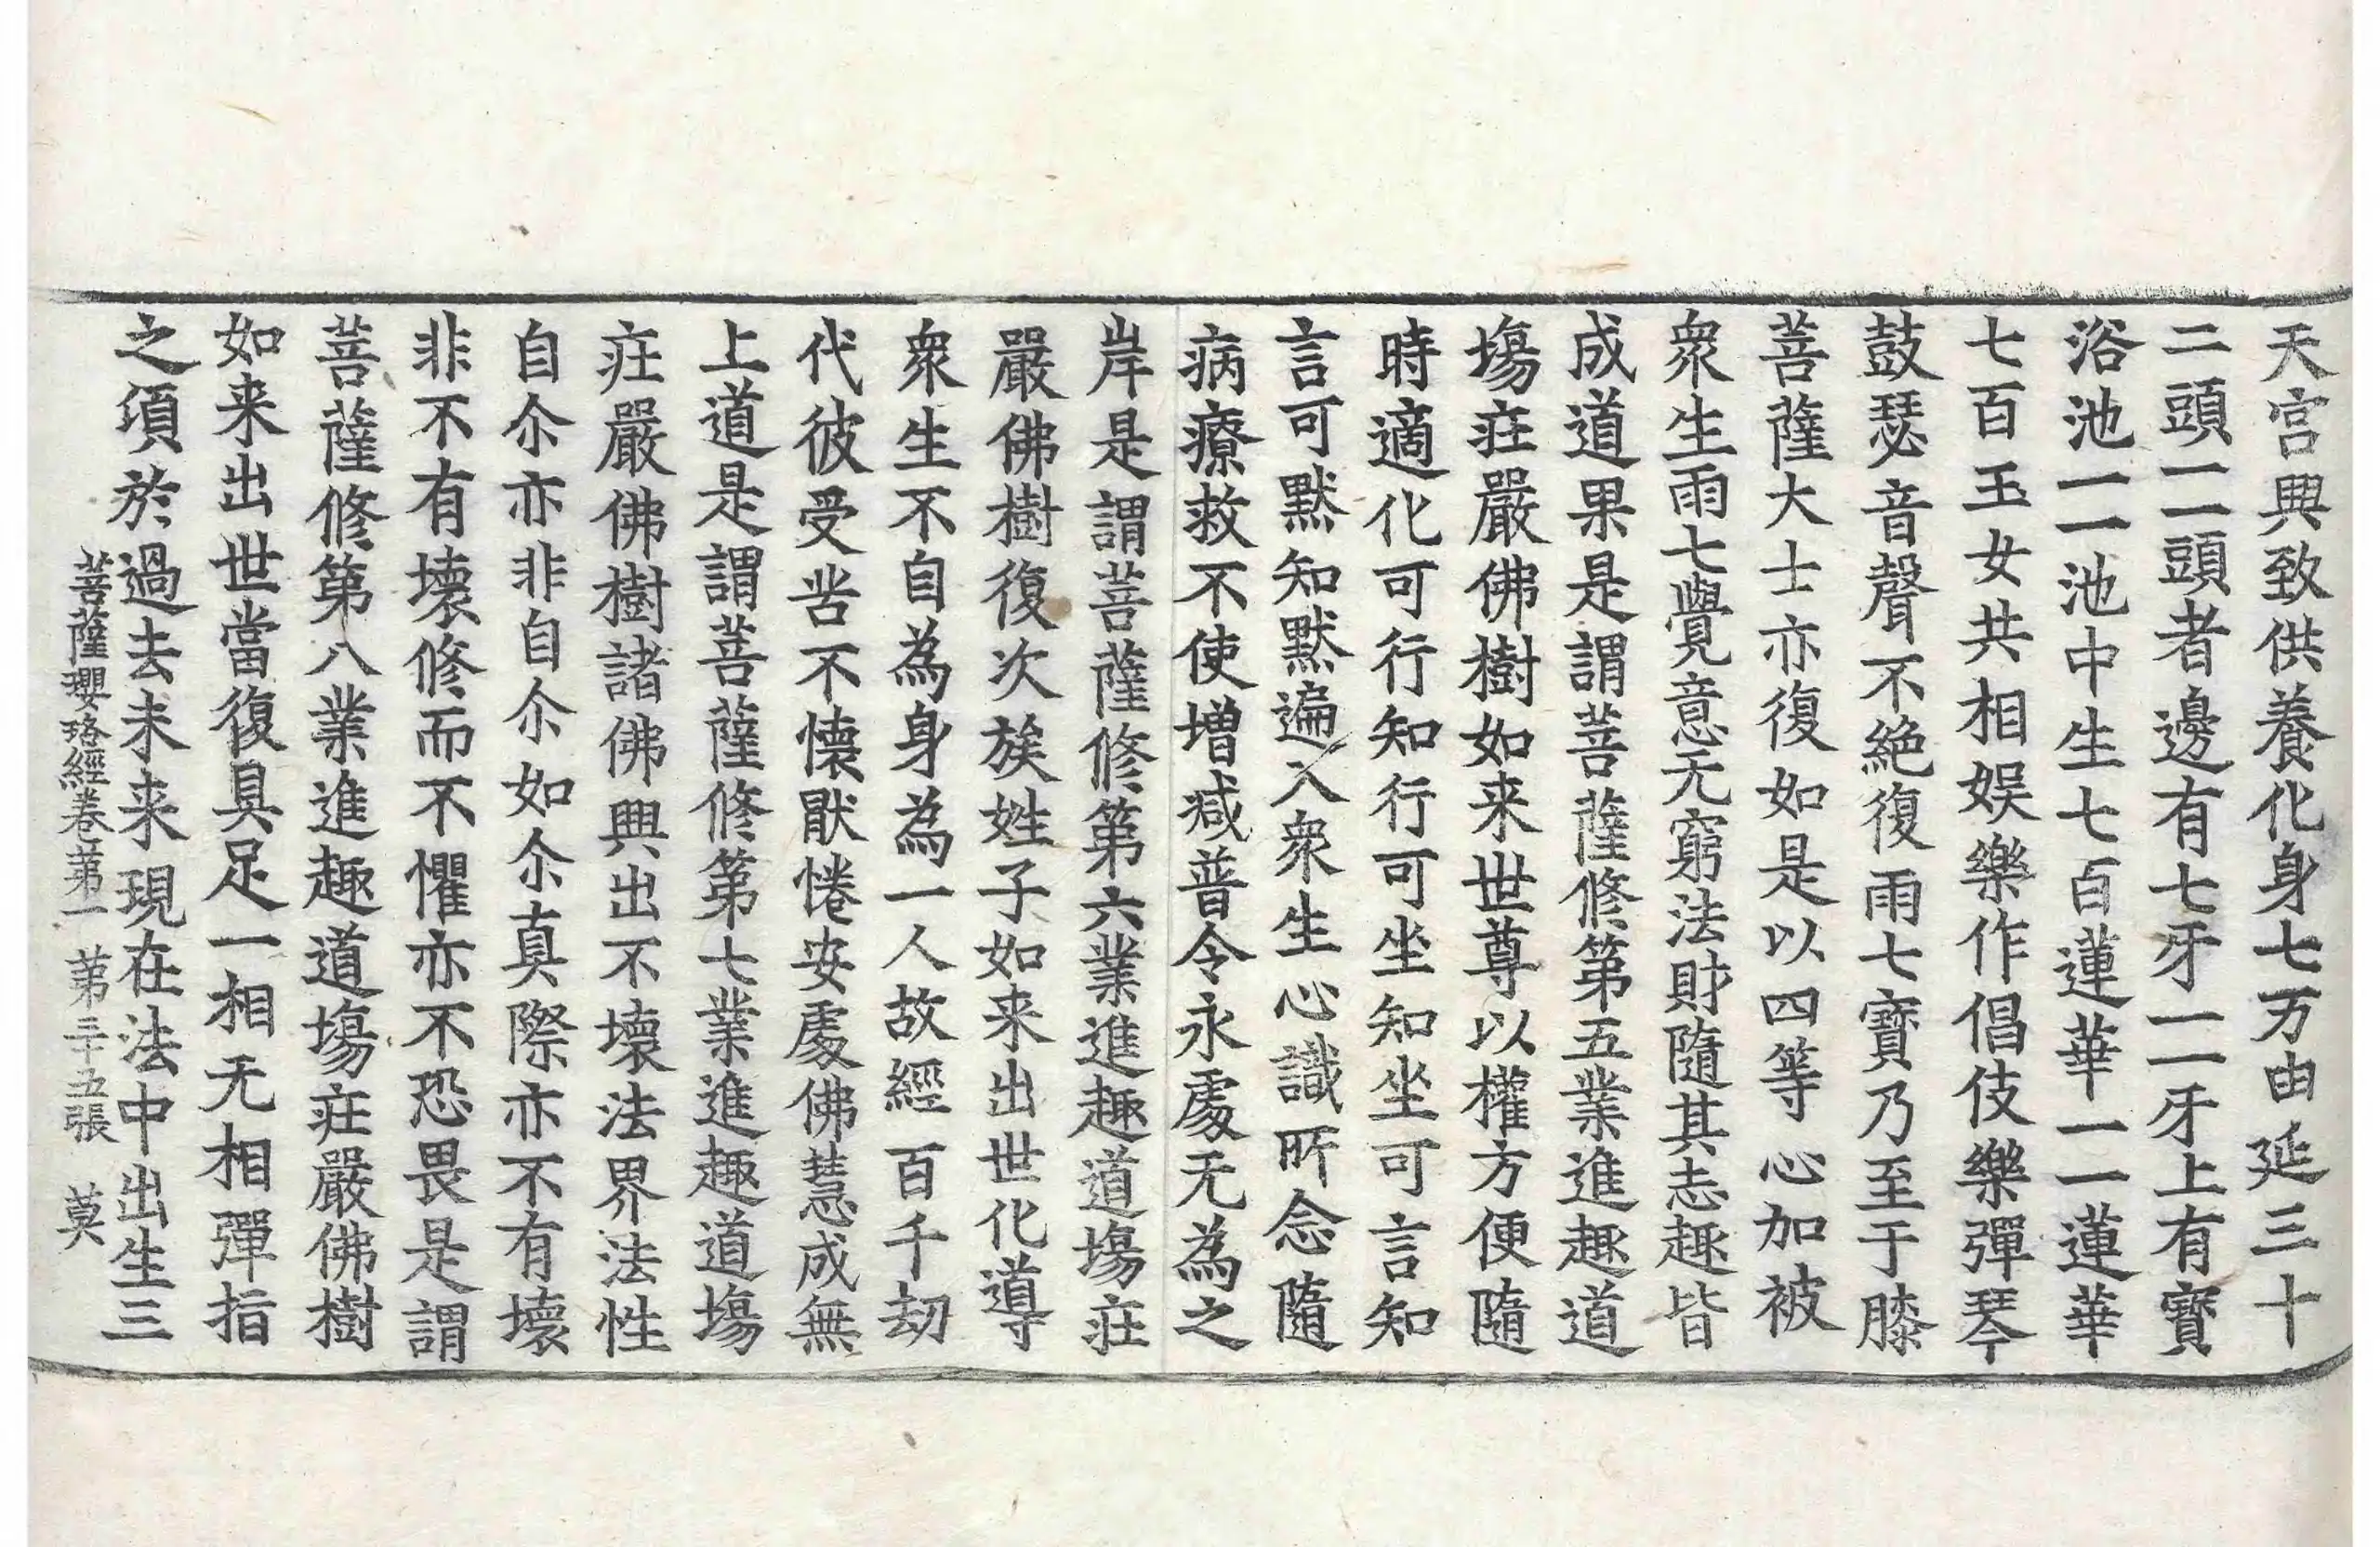 天宮興致供養化身七万由延三十
二頭一一頭者邊有七牙一一牙上有寶
浴池一一池中生七百蓮華一一蓮華
七百玉女共相娛樂作倡伎樂彈琴
鼓瑟音聲不絶復雨七寶乃至于膝
菩薩大士亦復如是以四等心加被
衆生雨七覺意无窮法財隨其志趣皆
成道果是謂菩薩修第五業進趣道
場莊嚴佛樹如来世尊以權方便隨
時適化可行知行可坐知坐可言知
言可默知默遍入衆生心識所念隨
病療救不使增減普令永處无為之
岸是謂菩薩修第六業進趣道場莊
嚴佛樹復次族姓子如来出世化導
衆生不自為身為一人故經百千劫
代彼受苦不懷厭惓安處佛慧成無
上道是謂菩薩修第七業進趣道場
莊嚴佛樹諸佛興出不壞法界法性
自尒亦非自尒如尒真際亦不有壞
非不有壞修而不懼亦不恐畏是謂
菩薩修第八業進趣道場莊嚴佛樹
如来出世當復具足一相无相彈指
之須於過去未来現在法中出生三
菩薩瓔珞經卷第一 第三十五張 莫